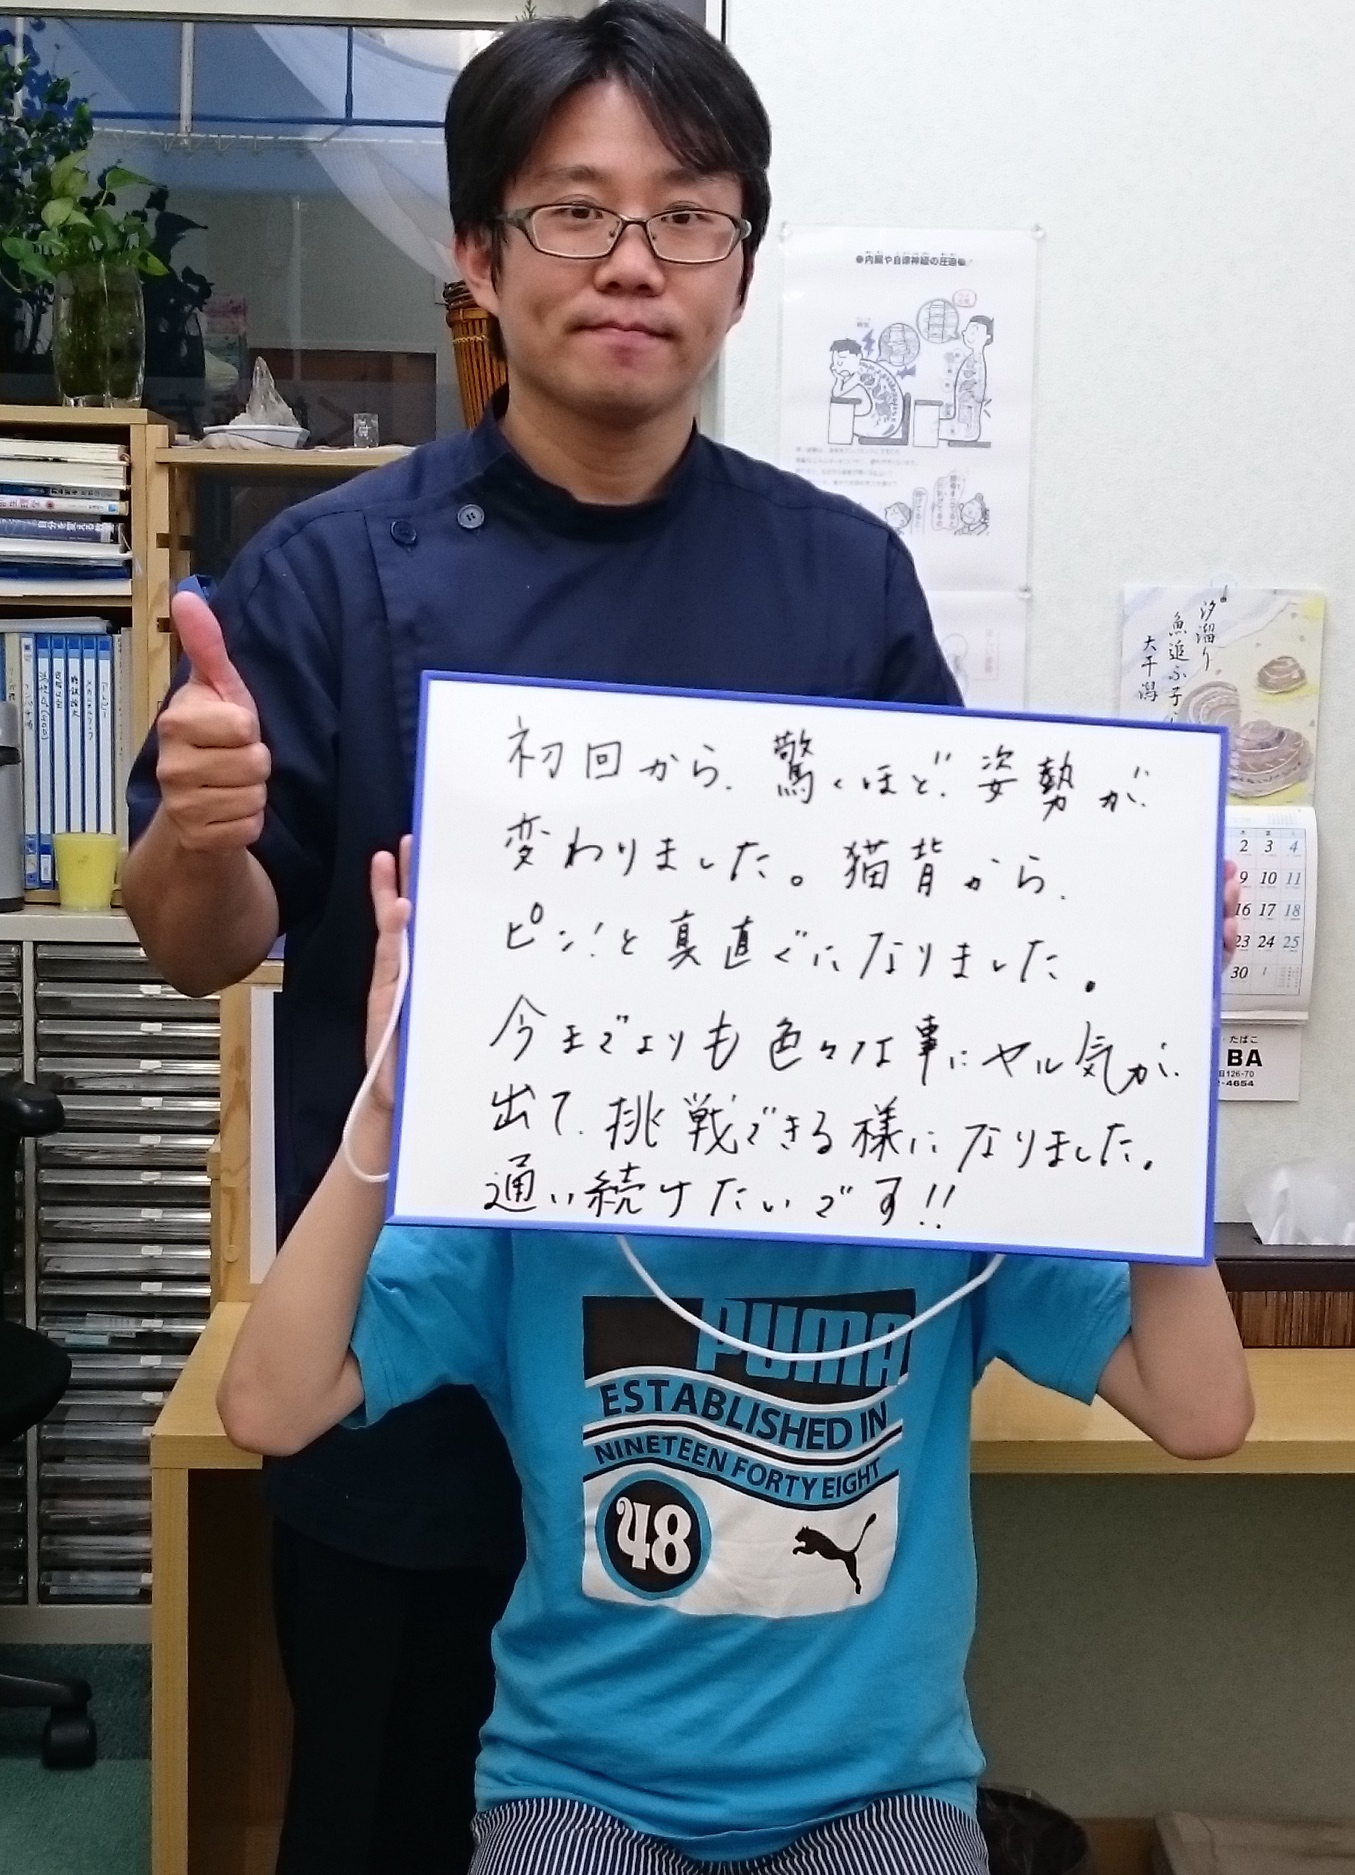 初回から、驚くほど、姿勢が、
変わりました。猫背から、
ピン!と真直ぐになりました。
今までよりも色々な事にヤル気が、
出て、挑戦できる様になりました。
通い続けたいです!!
PUMA
ESTABLISHED IN
NINETEEN FORTY EIGHT
48
●内臓や自律神経の圧迫
汐溜り
魚追ふ子
大干潟
2 3 4
9 10 11
16 17 18
23 24 25
30 1
たばこ
BA
126-70
-4654